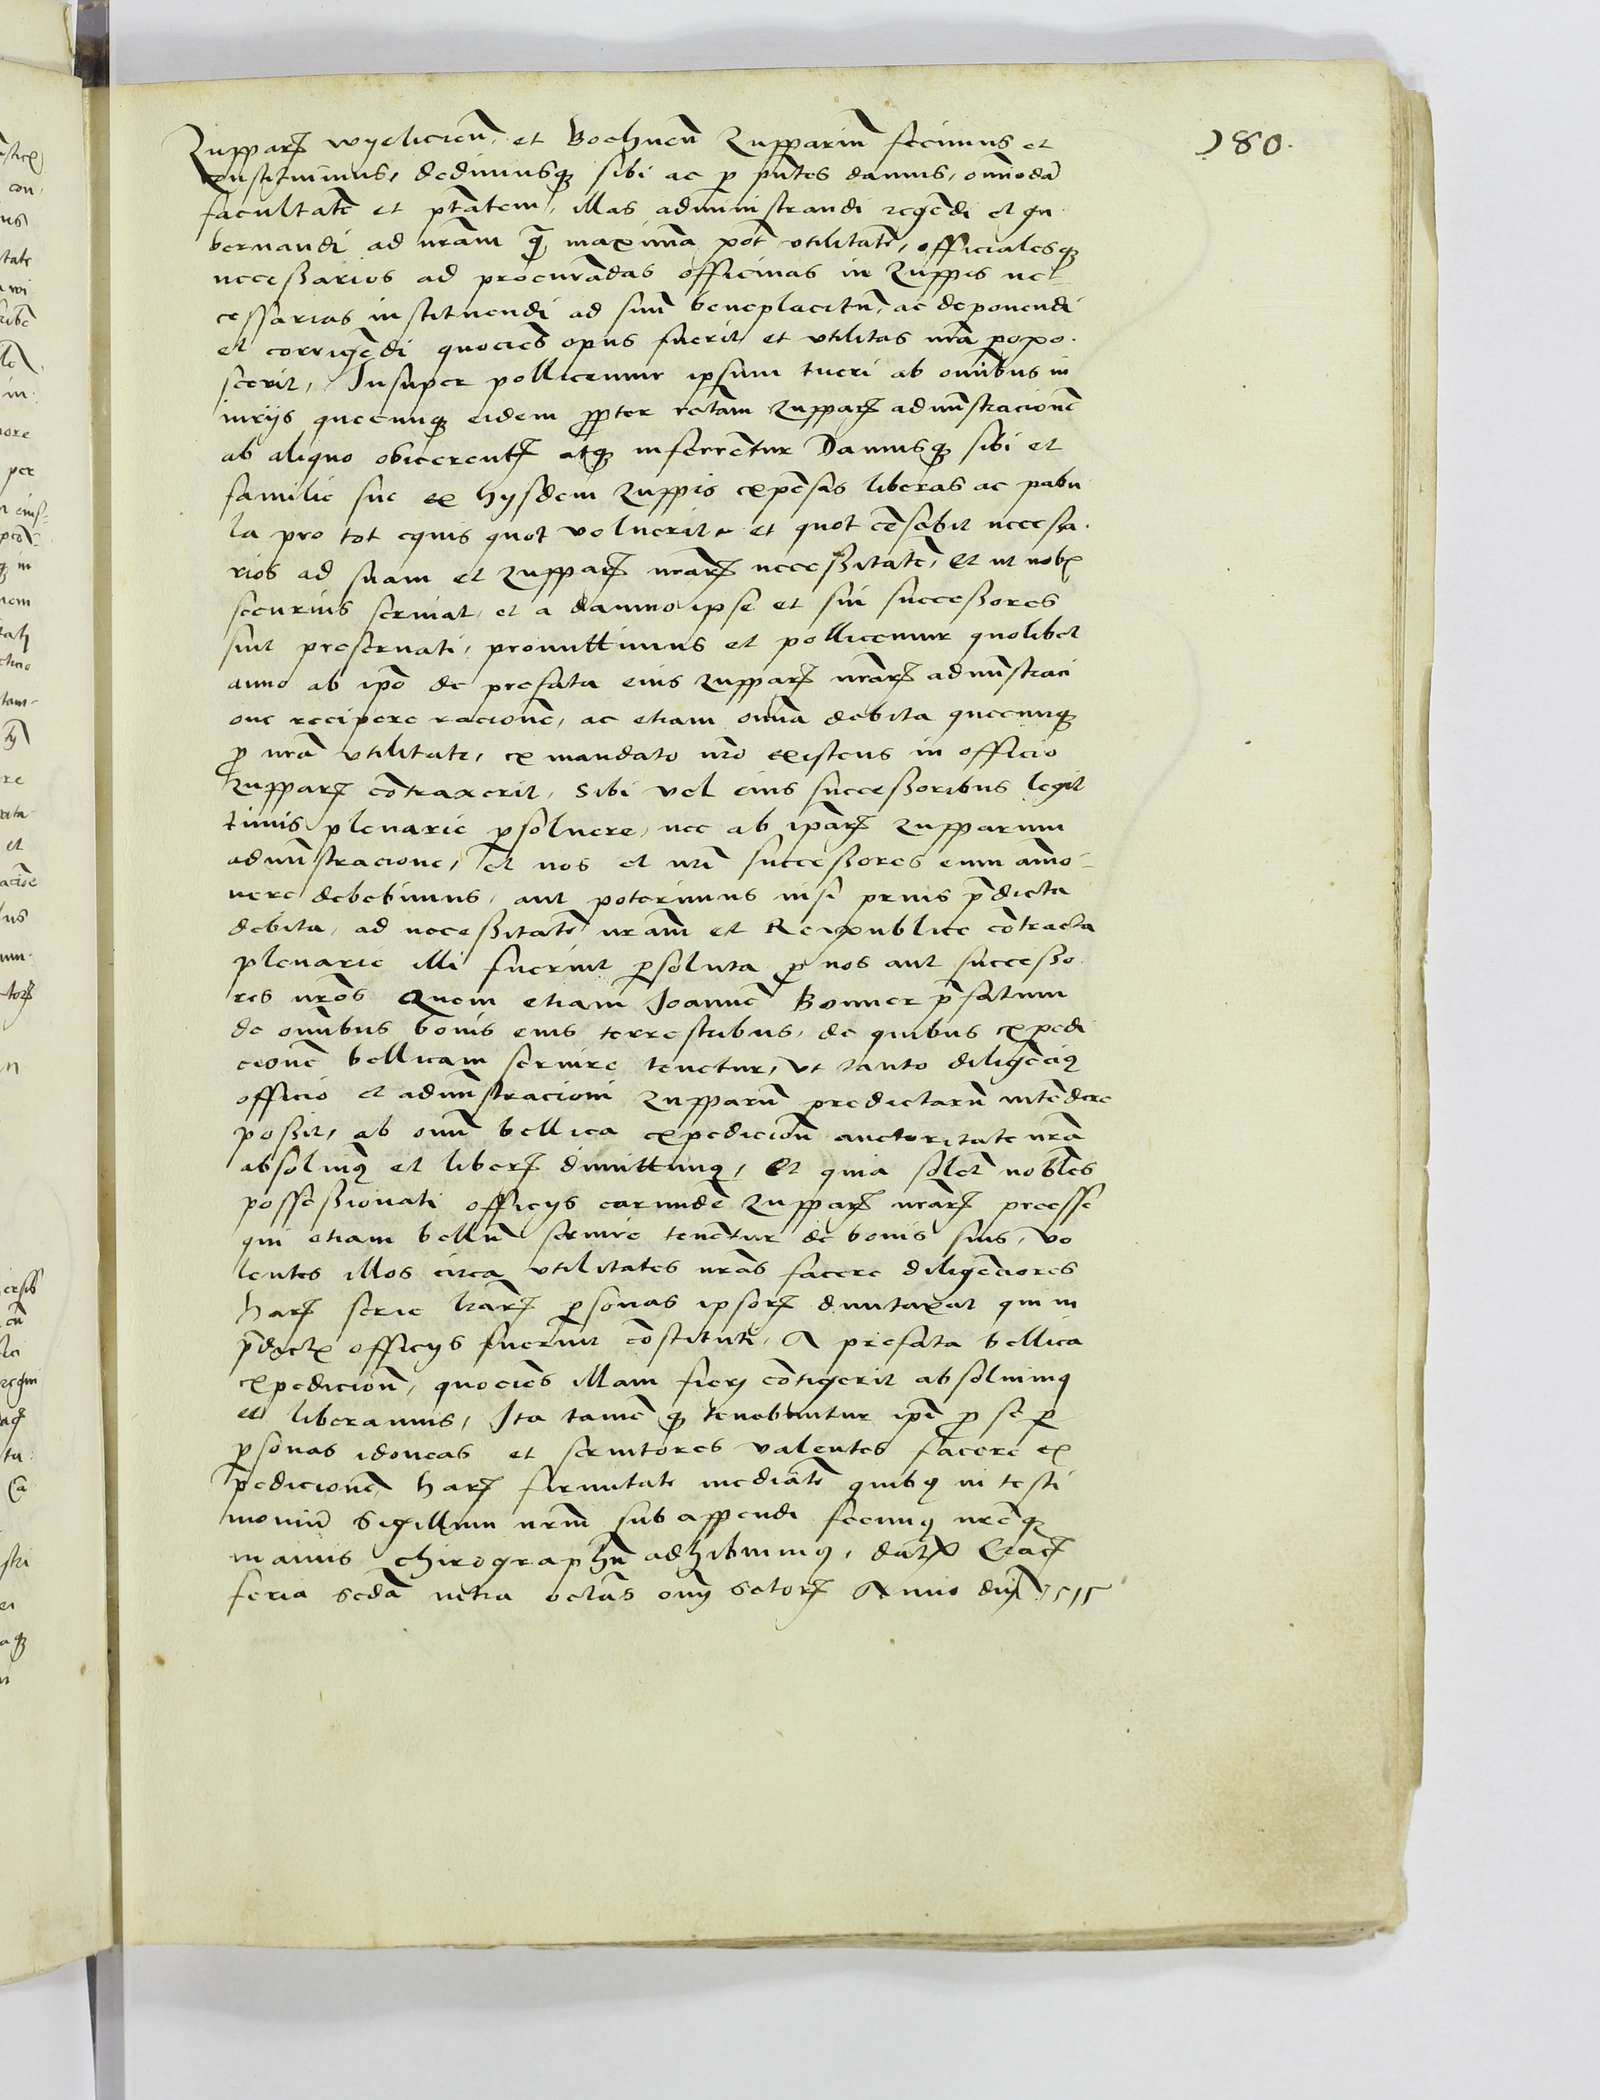 180.
Zupparum wyelicien̄ et Bochnen̄ Zupparium fecimus et
constituimus, dedimusq3 sibi ac p pn̄tes damus, omnodā
facultatē et ptātem, illas administrandi regēdi et gu
bernandi ad nrām q̄ maxima pot utilitatē, officialesq3
necessarios ad procurādas officinas in Zuppis ne-
cessarias instituendi ad suū beneplacitū, ac deponendi
et corrigēdi quociēs opus fuerit et utilitas nrā popo-
scerit, Insuper pollicemur ipsum tueri ab omībus in
iurijs quecunq3 eidem propter rectam zupparum adm̄stracionē
ab aliquo obicerentur atq3 inferrētur Damusq3 sibi et
familie sue ex hysdem zuppis expēsas liberas ac pabu
la pro tot equis quot voluerit et quot cēsebit necessa-
rios ad suam et zupparum nrārum necessitatē, Et ut nobis
securius seruiat, et a damno ipse et sui successores
sint preseruati, promittimus et pollicemur quolibet
anno ab ip̄o de prefata eius zupparum nrārum adm̄straci
one recipere racionē, ac etiam om̄ia debita quecunq3
p nrā utilitate, ex mandato nrō existens in officio
zupparum cōtraxerit, sibi vel eius successoribus legit
timis plenarie psoluere, nec ab ip̄arum zupparum
adm̄stracione, et nos et nrī successores eum amo-
uere debebimus, aut poterimus nisi prius p̄dicta
debita, ad necessitatē nrām et Reipublice cōtracta
plenarie illi fuerint psoluta p nos aut successo
res nrōs Quem etiam Joannē Bonner p̄fatum
de omībus bonis eius terrestribus, de quibus expedi
cionē bellicam seruire tenetur, ut tanto diligēcius
officio et adm̄stracioni zupparū predictarū intēdere
possit, ab omī bellica expedicion̄ auctoritate nrā
absoluimus et liberum dimittimus, Et quia solēt nobiles
possessionati officijs earundē zupparum nrārum preesse
qui etiam bellū seruire tenētur de bonis suis, vo
lentes illos circa utilitates nrās facere diligēciores
harum serie lrārum psonas ipsorum duntaxat qui in
p̄dictis officijs fuerint cōstituti, A prefata bellica
expedicion̄, quociēs illam fieri cōtigerit absoluimus
et liberamus, Ita tamē q3 tenebuntur ip̄i p se p
psonas idoneas et seruitores valentes facere ex
pedicionē, harum firmitate mediāte quibus in testi
moniū Sigillum nrm̄ subappendi fecimus nrēq3
manus chirographū adhibuimus, datum Cracouie
feria scdā infra octāās omī sctorum Anno dnī 1515